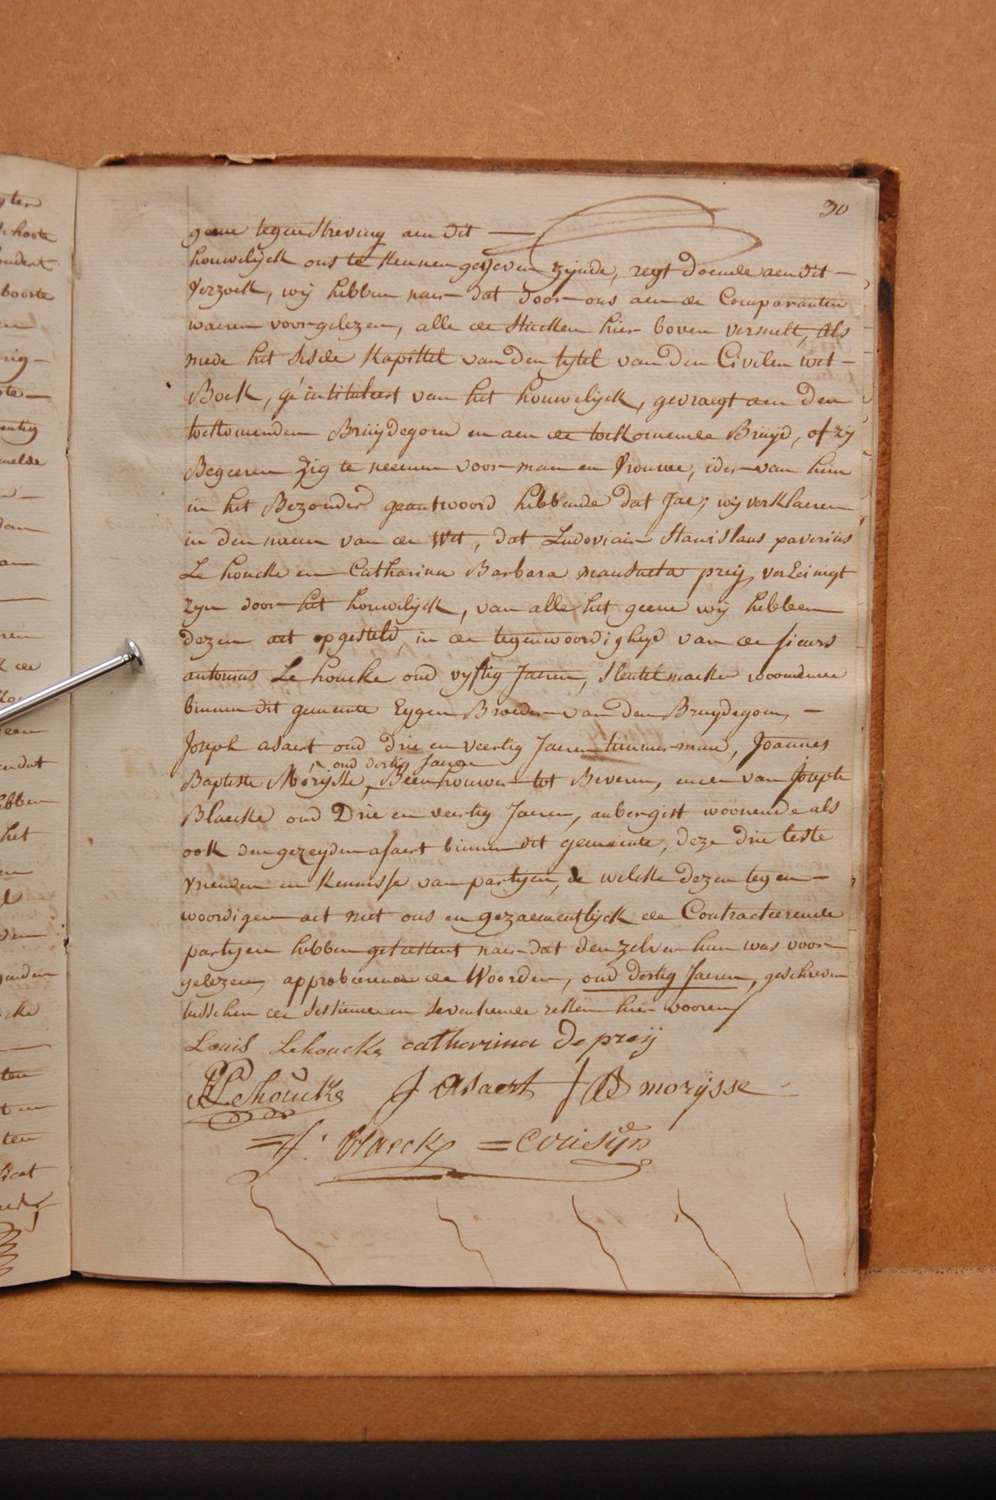 30
geene tegenstreving aen dit —
houwelijck ons te kennen gegeven zijnde, regt doende aen dit —
verzoek, wij hebben naer dat door ons aen de Comparanten
waeren voorgelezen, alle de stucken hier boven vermelt, als
mede het seste Kapittel van den tytel van den Civilen wet —
Boek, g'intituleert van het houwelijck, gevraegt aen den
toekomenden Bruydegom en aen de toekomende Bruyd, of zy
Begeeren zig te neemen voor man en vrouwe, ider van hun
in het Bezonder geantwoord hebbende dat Jae; wij verklaeren
in den naem van de wet, dat Ludovicus Stanislaus Xaverius
Le houcke en Catharina Barbara mansueta preij, vereenigt
zyn door het houwelijck, van alle het geene wij hebben
dezen act opgesteld, in de tegenwoordigheyd van de sieurs
antonius Le houcke oud vyftig Jaeren, sleutelmaeker woonende
binnen dit gemeente Eygen Broeder van den Bruydegom, —
Joseph asaert oud drie en veertig Jaeren timmer-man, Joannes
oud dertig Jaeren
Baptiste Morijsse, Beenhouwer tot Beveren, ende van Joseph
Blaecke oud Drie en veertig Jaeren, aubergist woonende als
ook den gezeyden asaert binnen dit gemeente, deze drie leste
vrienden en kennisse van partyen, de welcke dezen tegen —
woordigen act met ons en gezaementlijck de Contracteerende
partyen hebben geteekent naer dat den zelven hun was voor
gelezen, approbeerende de Woorden, oud dertig Jaeren, geschreven
tusschen de sestiende en seventiende reken hier vooren
Louis Lehoucke catharina De preij
Lehoucke J Asaert J B morijsse
J. Blaecke = Cousijn